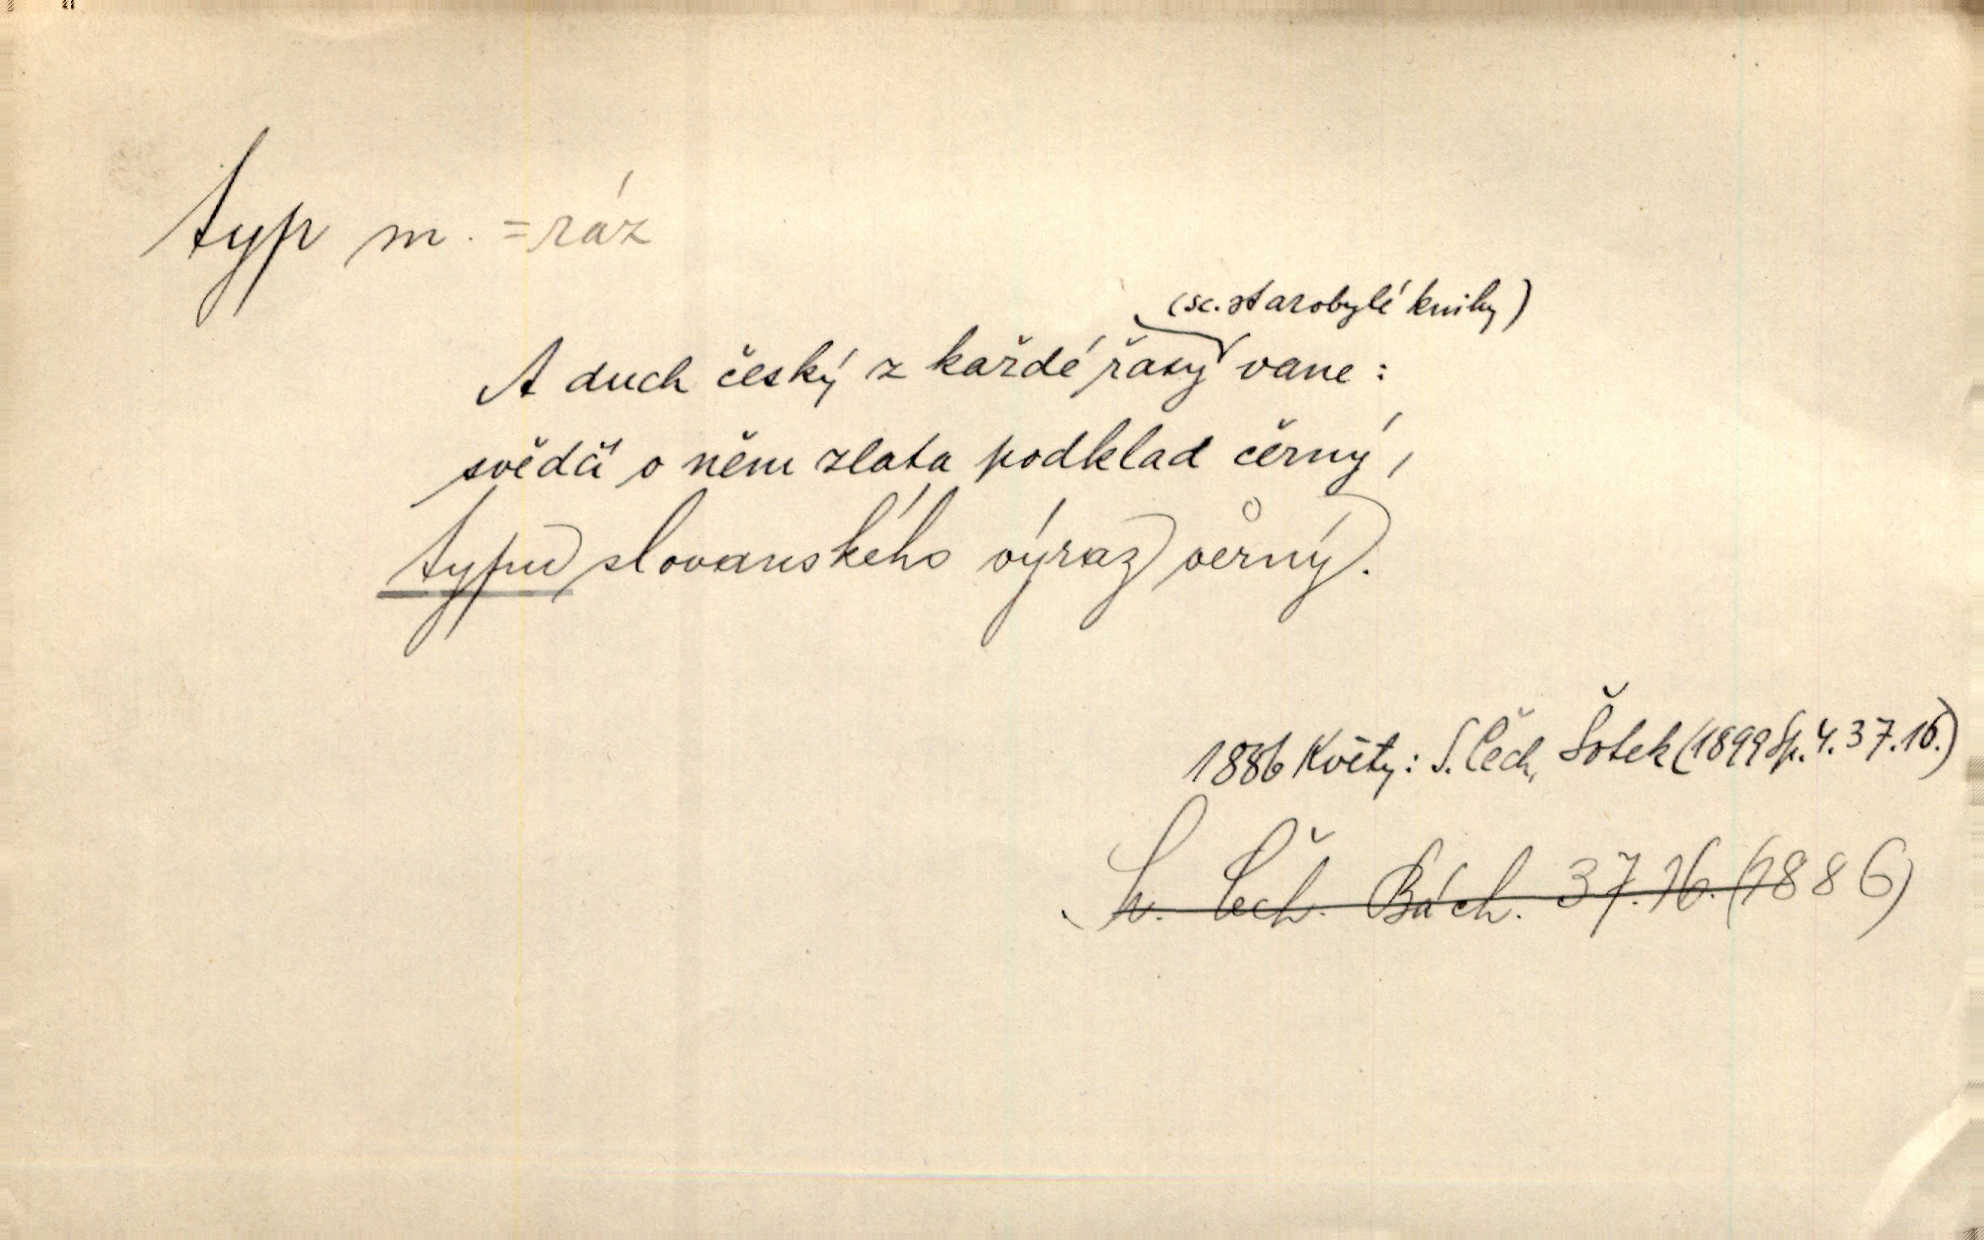 typ m. = ráz
(sc. starobylé knihy)
A duch český z každé řasy vane:
svědčí o něm zlata podklad černý,
typu slovanského výraz věrný.
1886 Květy: S. Čech, Šotek (1899 Sp. 4. 37.16.)
Čech. Bách. 37.16. (1886)